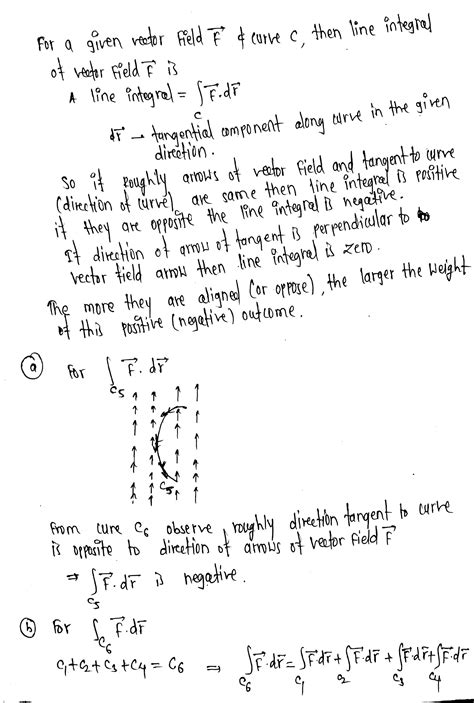 For a given vector field F⃗ & curve C, then line integral
of vector field F⃗ is
A line integral = ∫_C F⃗.dr⃗
dr⃗ → tangential component along curve in the given
direction.
So if roughly arrows of vector field and tangent to curve
(direction of curve) are same then line integral is positive
if they are opposite the line integral is negative.
If direction of arrow of tangent is perpendicular to
vector field arrow then line integral is zero.
The more they are aligned (or oppose), the larger the weight
of this positive (negative) outcome.
(a) For ∫_C5 F⃗.dr⃗
C5
From cure C6 observe, roughly direction tangent to curve
is opposite to direction of arrows of vector field F⃗
⇒ ∫_C5 F⃗.dr⃗ is negative.
(b) For ∫_C6 F⃗.dr⃗
C1+C2+C3+C4 = C6 ⇒ ∫_C6 F⃗.dr⃗ = ∫_C1 F⃗.dr⃗ + ∫_C2 F⃗.dr⃗ + ∫_C3 F⃗.dr⃗ + ∫_C4 F⃗.dr⃗